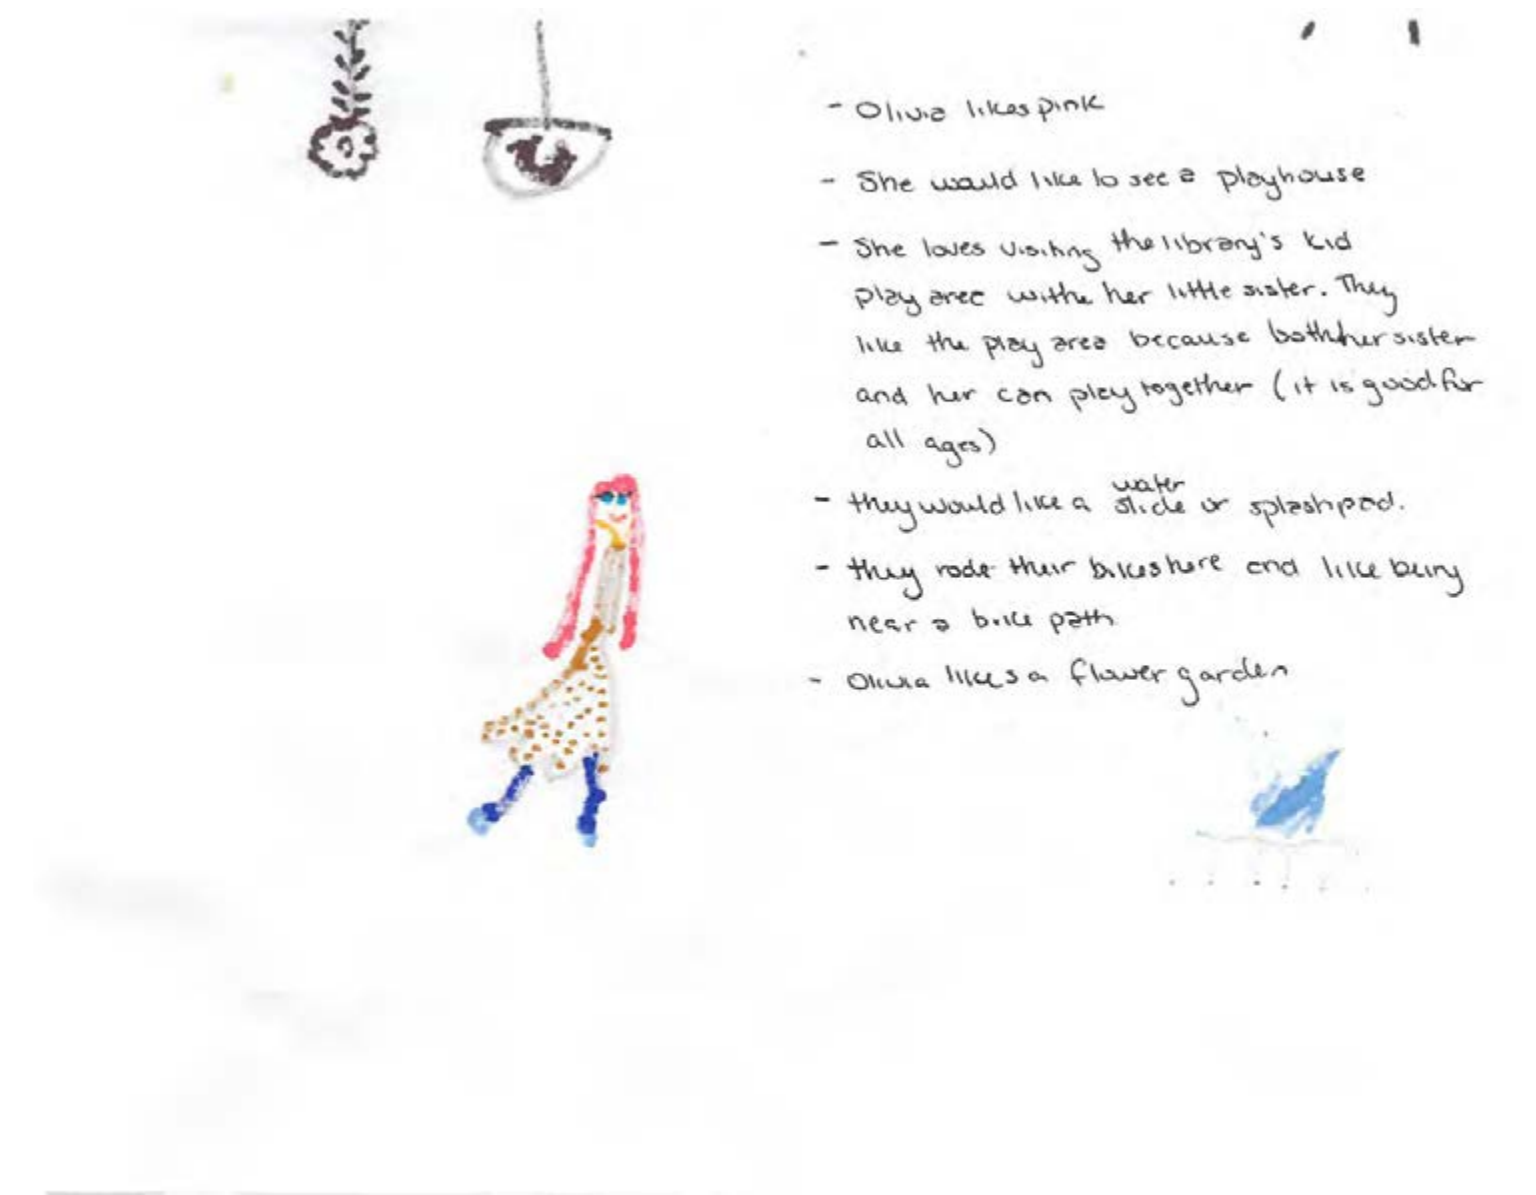 - Olivia likes pink
- She would like to see a playhouse
- She loves visiting the library's kid
play area withe her little sister. They
like the play area because both her sister
and her can play together (it is good for
all ages)
water
- they would like a slide or splashpad.
- they rode their bikes here and like being
near a bike path
- Olivia likes a flower garden